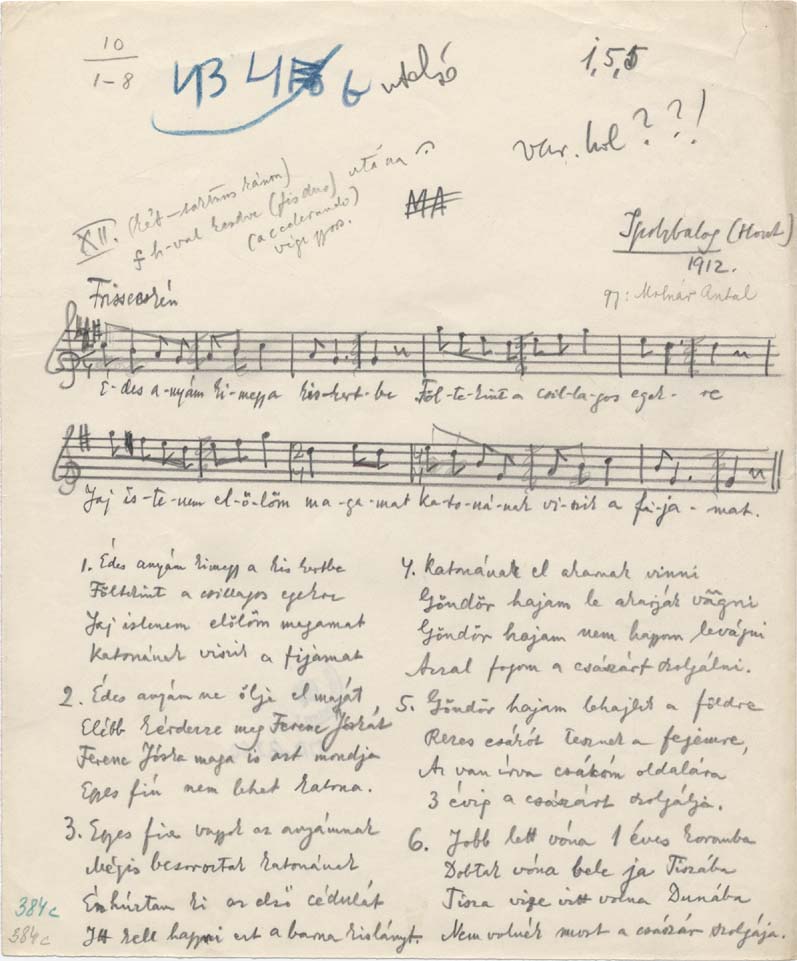 10
1-8
43 4 6 utolsó
1, 5, 5
var. hol ? ? !
XII.
f h-val kezdve (fisdur)
(accelerando)
MA
Ipolybalog (Hont)
1912.
gy: Molnár Antal
Frissecskén
É-des a-nyám ki-megy a kis-kert-be Föl-te-kint a csil-la-gos egek-re
Jaj is-te-nem el-ö-löm ma-ga-mat ka-to-ná-nak vi-szik a fi-ja-mat.
1. Édes anyám kimegy a kis kertbe
Föltekint a csillagos egekre
Jaj istenem elölöm magamat
Katonának viszik a fijamat
2. Édes anyám ne ölje el magát
Elébb kérdezze meg Ferenc Jóskát
Ferenc Jóska maga is azt mondja
Egyes fiú nem lehet katona.
3. Egyes fia vagyok az anyámnak
Mégis besoroztak katonának
Én húztam ki az első cédulát
Itt kell hagyni ezt a barna kislányt.
4. Katonának el akarnak vinni
Göndör hajam le akarják vágni
Göndör hajam nem hagyom levágni
Azzal fogom a császárt szolgálni.
5. Göndör hajam lehajlik a földre
Rezes csákót tesznek a fejemre,
Az van írva csákóm oldalára
3 évig a császárt szolgálja.
6. Jobb lett vóna 1 éves koromba
Dobtak vóna bele ja Tiszába
Tisza vize vitt volna Dunába
Nem volnék most a császár szolgája.
384c
384c